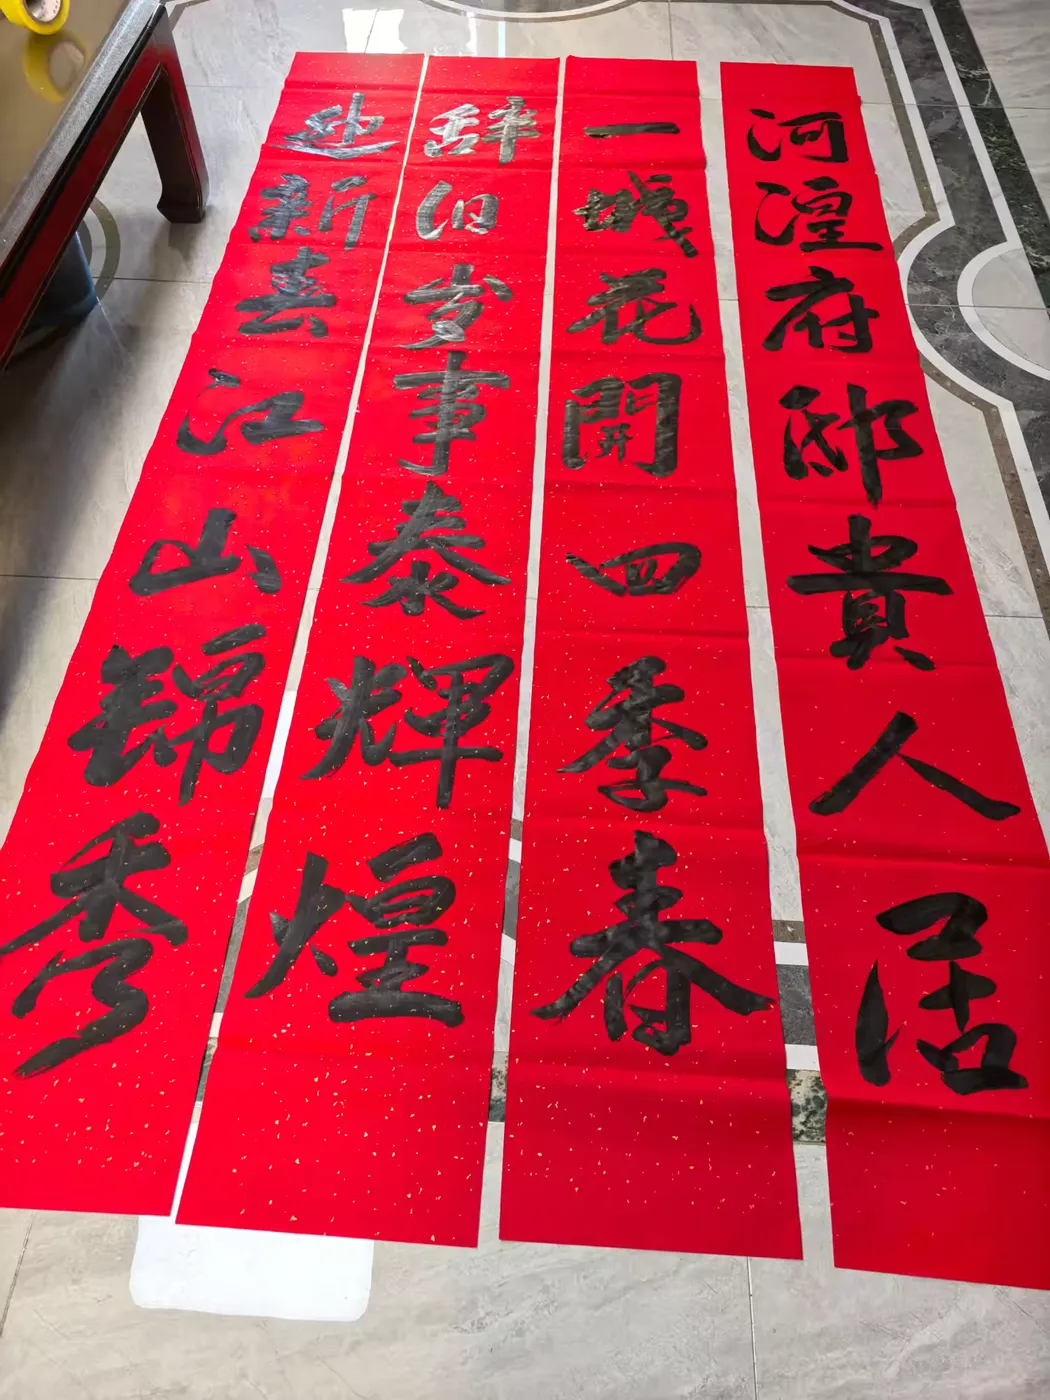 河湟府邸貴人居
一城花開四季春
辞旧岁事泰輝煌
迎新春江山錦秀